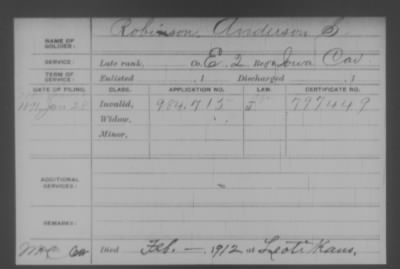 Robinson, Anderson S.
NAME OF SOLDIER:
SERVICE: Late rank, Co. E. 2 Reg't Iowa Cav
TERM OF SERVICE: Enlisted , 1 Discharged , 1
DATE OF FILING. CLASS. APPLICATION NO. LAW. CERTIFICATE NO.
1891 Jan 28 Invalid, 984.715 J 797449
Widow,
Minor,
ADDITIONAL SERVICES:
REMARKS:
Died Feb. — , 1912 at Leoti Kans.